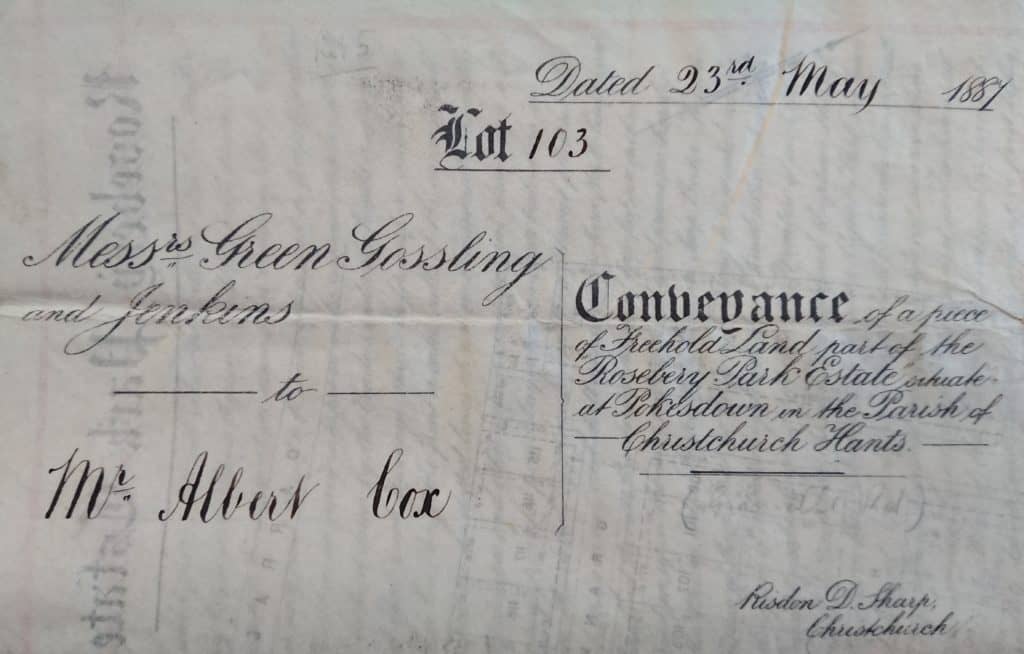 Dated 23rd May 1887
Lot 103
Messrs Green Gossling
and Jenkins
to
Mr Albert Cox
Conveyance of a piece
of Freehold Land part of the
Rosebery Park Estate situate
at Pokesdown in the Parish of
Christchurch Hants.
Risdon D. Sharp,
Christchurch